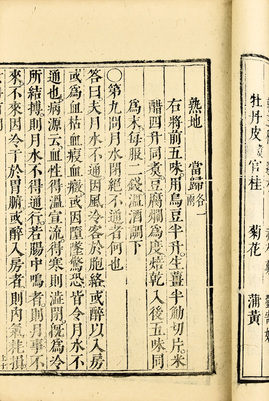 牡丹皮 官桂 菊花 蒲黃
熟地 當歸各一兩
右將前五味用烏豆半升生薑半觔切片米
醋四升同煑豆腐爛爲度焙乾入後五味同
爲末每服一錢溫酒調下
〇第九問月水閉絕不通者何也
答曰夫月水不通因風冷客於胞絡或醉以入房
或為血枯血瘕血癥或因墮墜驚恐皆令月水不
通也病源云血性得溫宣流得寒則澁閉既爲冷
所結搏則月水不得通行若腸中鳴者則月事不
來不來因冷于於胃腑或醉入房者則内氣耗損